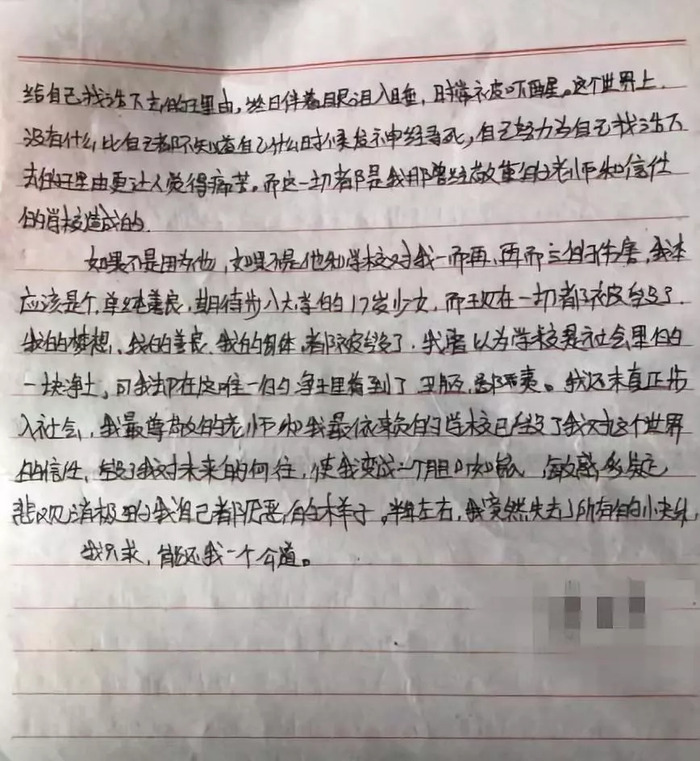 给自己找活下去的理由,终日伴着眼泪入睡,时常被吓醒。这个世界上
没有什么比自己都不知道自己什么时候发神经寻死,自己努力为自己找活下
去的理由更让人觉得痛苦。而这一切都是我那曾经敬重的老师和信任
的学校造成的.
如果不是因为他,如果不是他和学校对我一而再,再而三的伤害,我本
应该是个单纯善良,期待步入大学的17岁少女,而现在一切都被毁了.
我的梦想、我的善良、我的身体,都被毁了,我原以为学校是社会里的
一块净土,可我却在这唯一的净土里看到了丑陋,鄙夷。我还未真正步
入社会,我最尊敬的老师和我最依赖的学校已经毁了我对这个世界
的信任,毁了我对未来的向往,使我变成一个胆小如鼠,敏感多疑,
悲观消极的我自己都厌恶的样子。半年左右,我竟然失去了所有的小夹,
我只求,能还我一个公道。